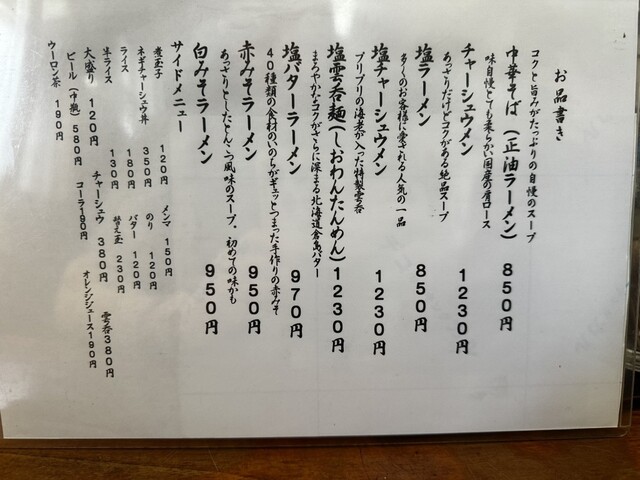 お品書き
コクと旨みがたっぷりの自慢のスープ
中華そば(正油ラーメン) 850円
味自慢とても柔らかい国産の肩ロース
チャーシュウメン 1230円
あっさりだけどコクがある絶品スープ
塩ラーメン 850円
多くのお客様に愛される人気の一品
塩チャーシュウメン 1230円
プリプリの海老が入った特製雲呑
塩雲呑麺(しおわんたんめん) 1230円
まろやかなコクがさらに深まる北海道倉島バター
塩バターラーメン 970円
40種類の食材のいのちがギュッとつまった手作りの赤みそ
赤みそラーメン 950円
あっさりとしたとんこつ風味のスープ、初めての味かも
白みそラーメン 950円
サイドメニュー
煮玉子 120円 メンマ 150円
ネギチャーシュウ丼 350円 のり 120円
ライス 180円 バター 120円
半ライス 130円 替え玉 230円
大盛り 120円 チャーシュウ 380円 雲呑 380円
ビール(中瓶) 580円 コーラ 190円 オレンジジュース 190円
ウーロン茶 190円